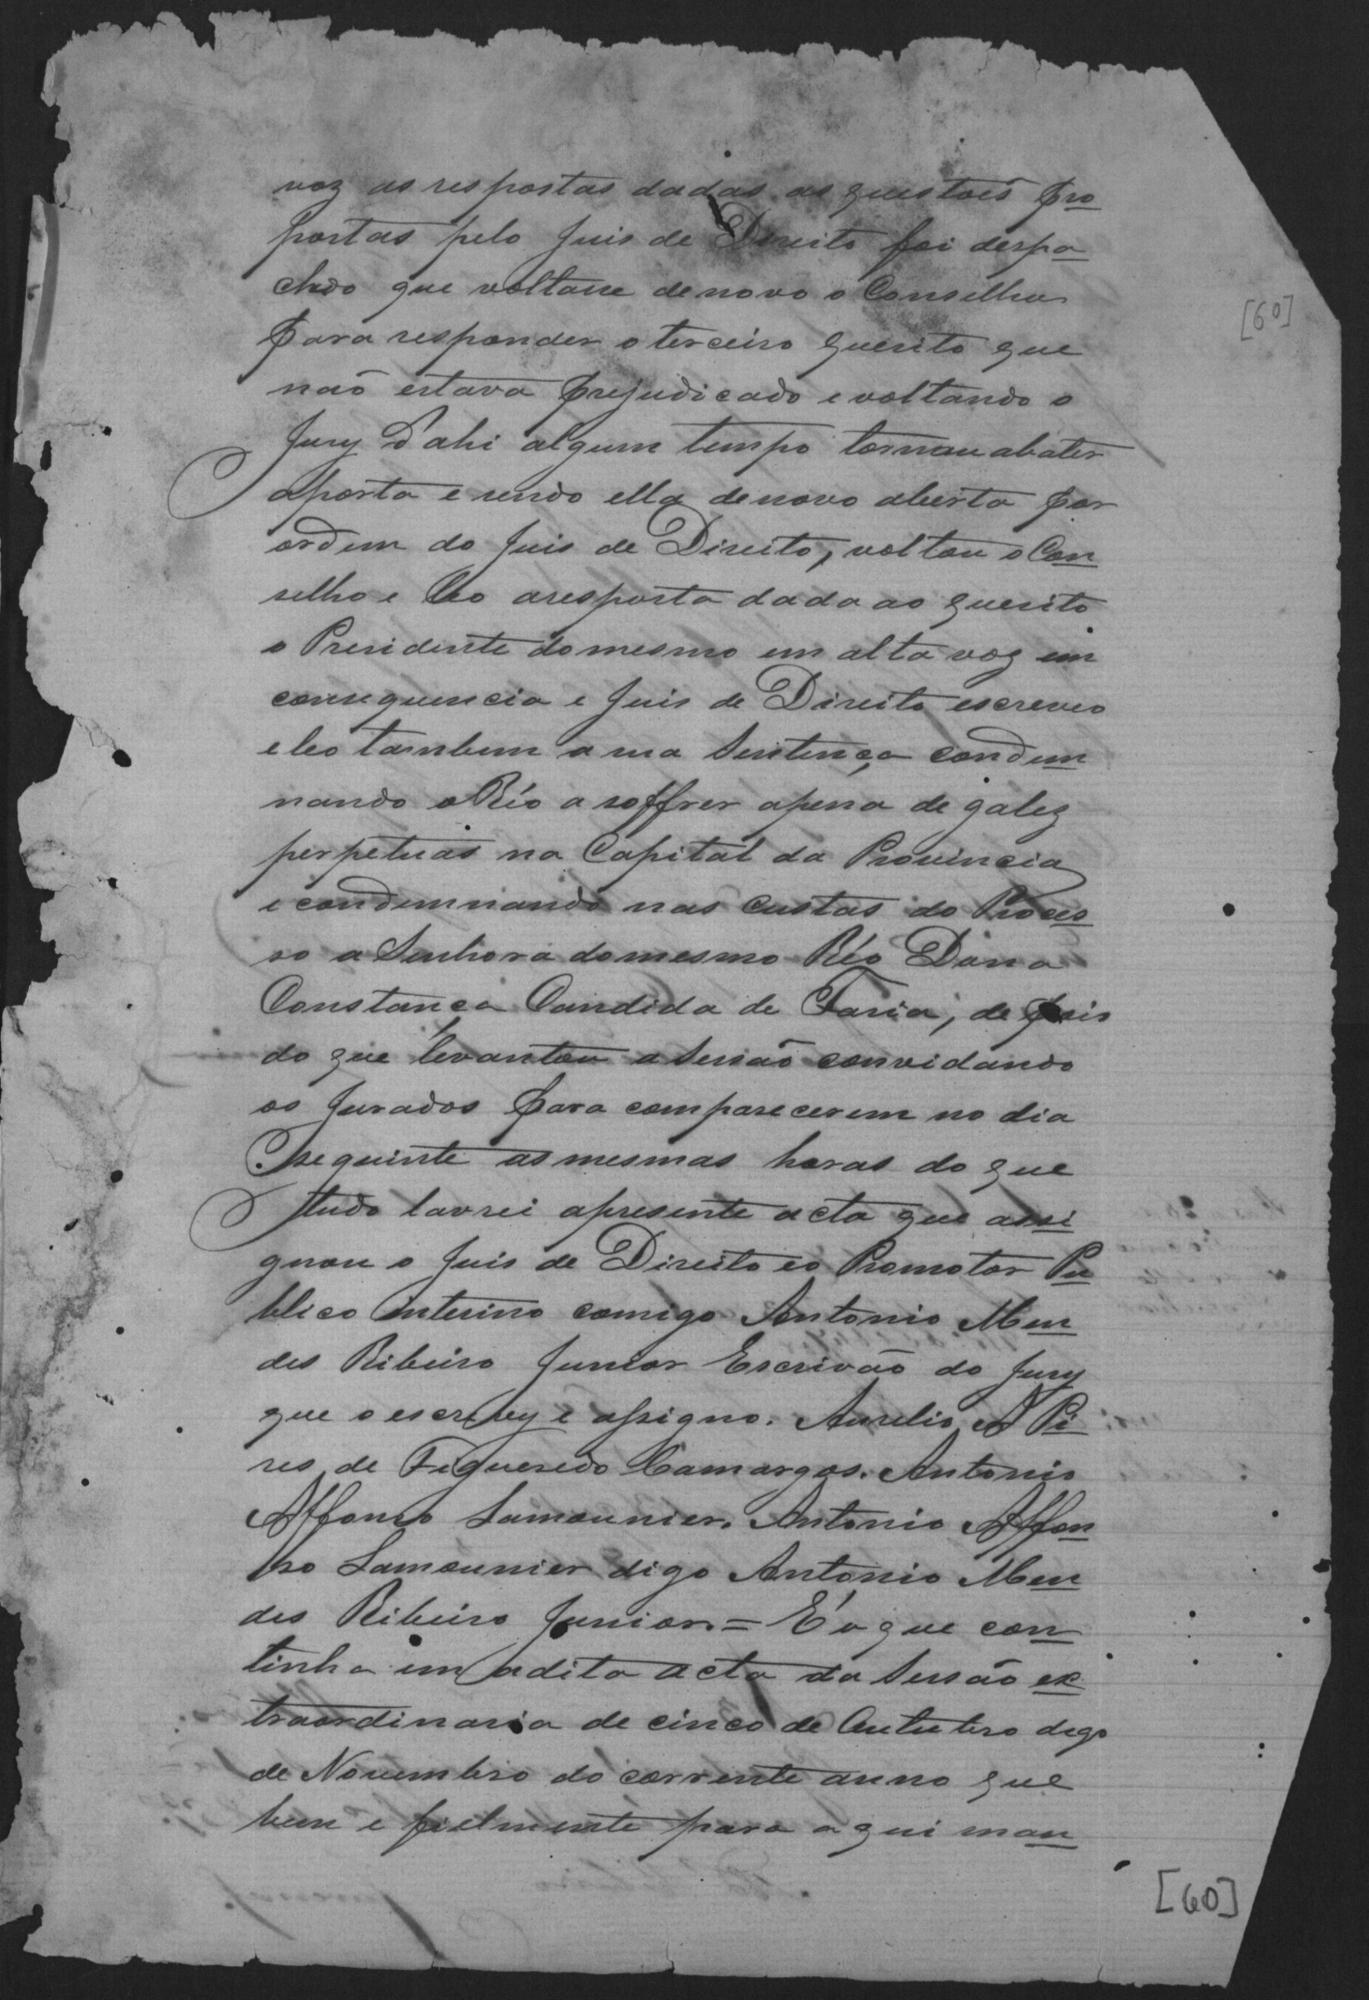 voz as respostas dadas as questoẽs pro
postas pelo Juis de Direito foi despa
chdo que voltasse denovo o Conselho
para responder o terceiro quesito que
naõ estava prejudicado e voltando o
Jury d'ahi algum tempo tornou abater
aporta e sendo ella denovo aberta por
ordem do Juis de Direito, voltou o Con
selho e leo aresposta dada ao quesito
o Presidente domesmo em alta voz em
consequencia e Juis de Direito escreveo
e leo tambem a sua Sentença condem
nando o Réo a soffrer apena de galez
perpetuas na Capital da Provincia
e condemnando nas Custas do Proces
so a Senhora domesmo Réo Dona
Constança Candida de Faria, de pois
do que levantou a Sessaõ convidando
os Jurados para comparecerem no dia
seguinte as mesmas horas do que
tudo lavrei apresente acta que assi
gnou o Juis de Direito eo Promotor Pu
blico interino comigo Antonio Men
des Ribeiro Junior Escrivão do Jury
que o escrevy e assigno. Aurelio A Pi
res de Figueredo Camargos. Antonio
Affonso Lamounier. Antonio Affon
so Lamounier digo Antonio Men
des Ribeiro Junior. = É o que con
tinha em adita acta da Sessão ex
traordinaria de cinco de Outubro digo
de Novembro do corrente anno que
bem e fielmente para aqui man
[60]
[60]